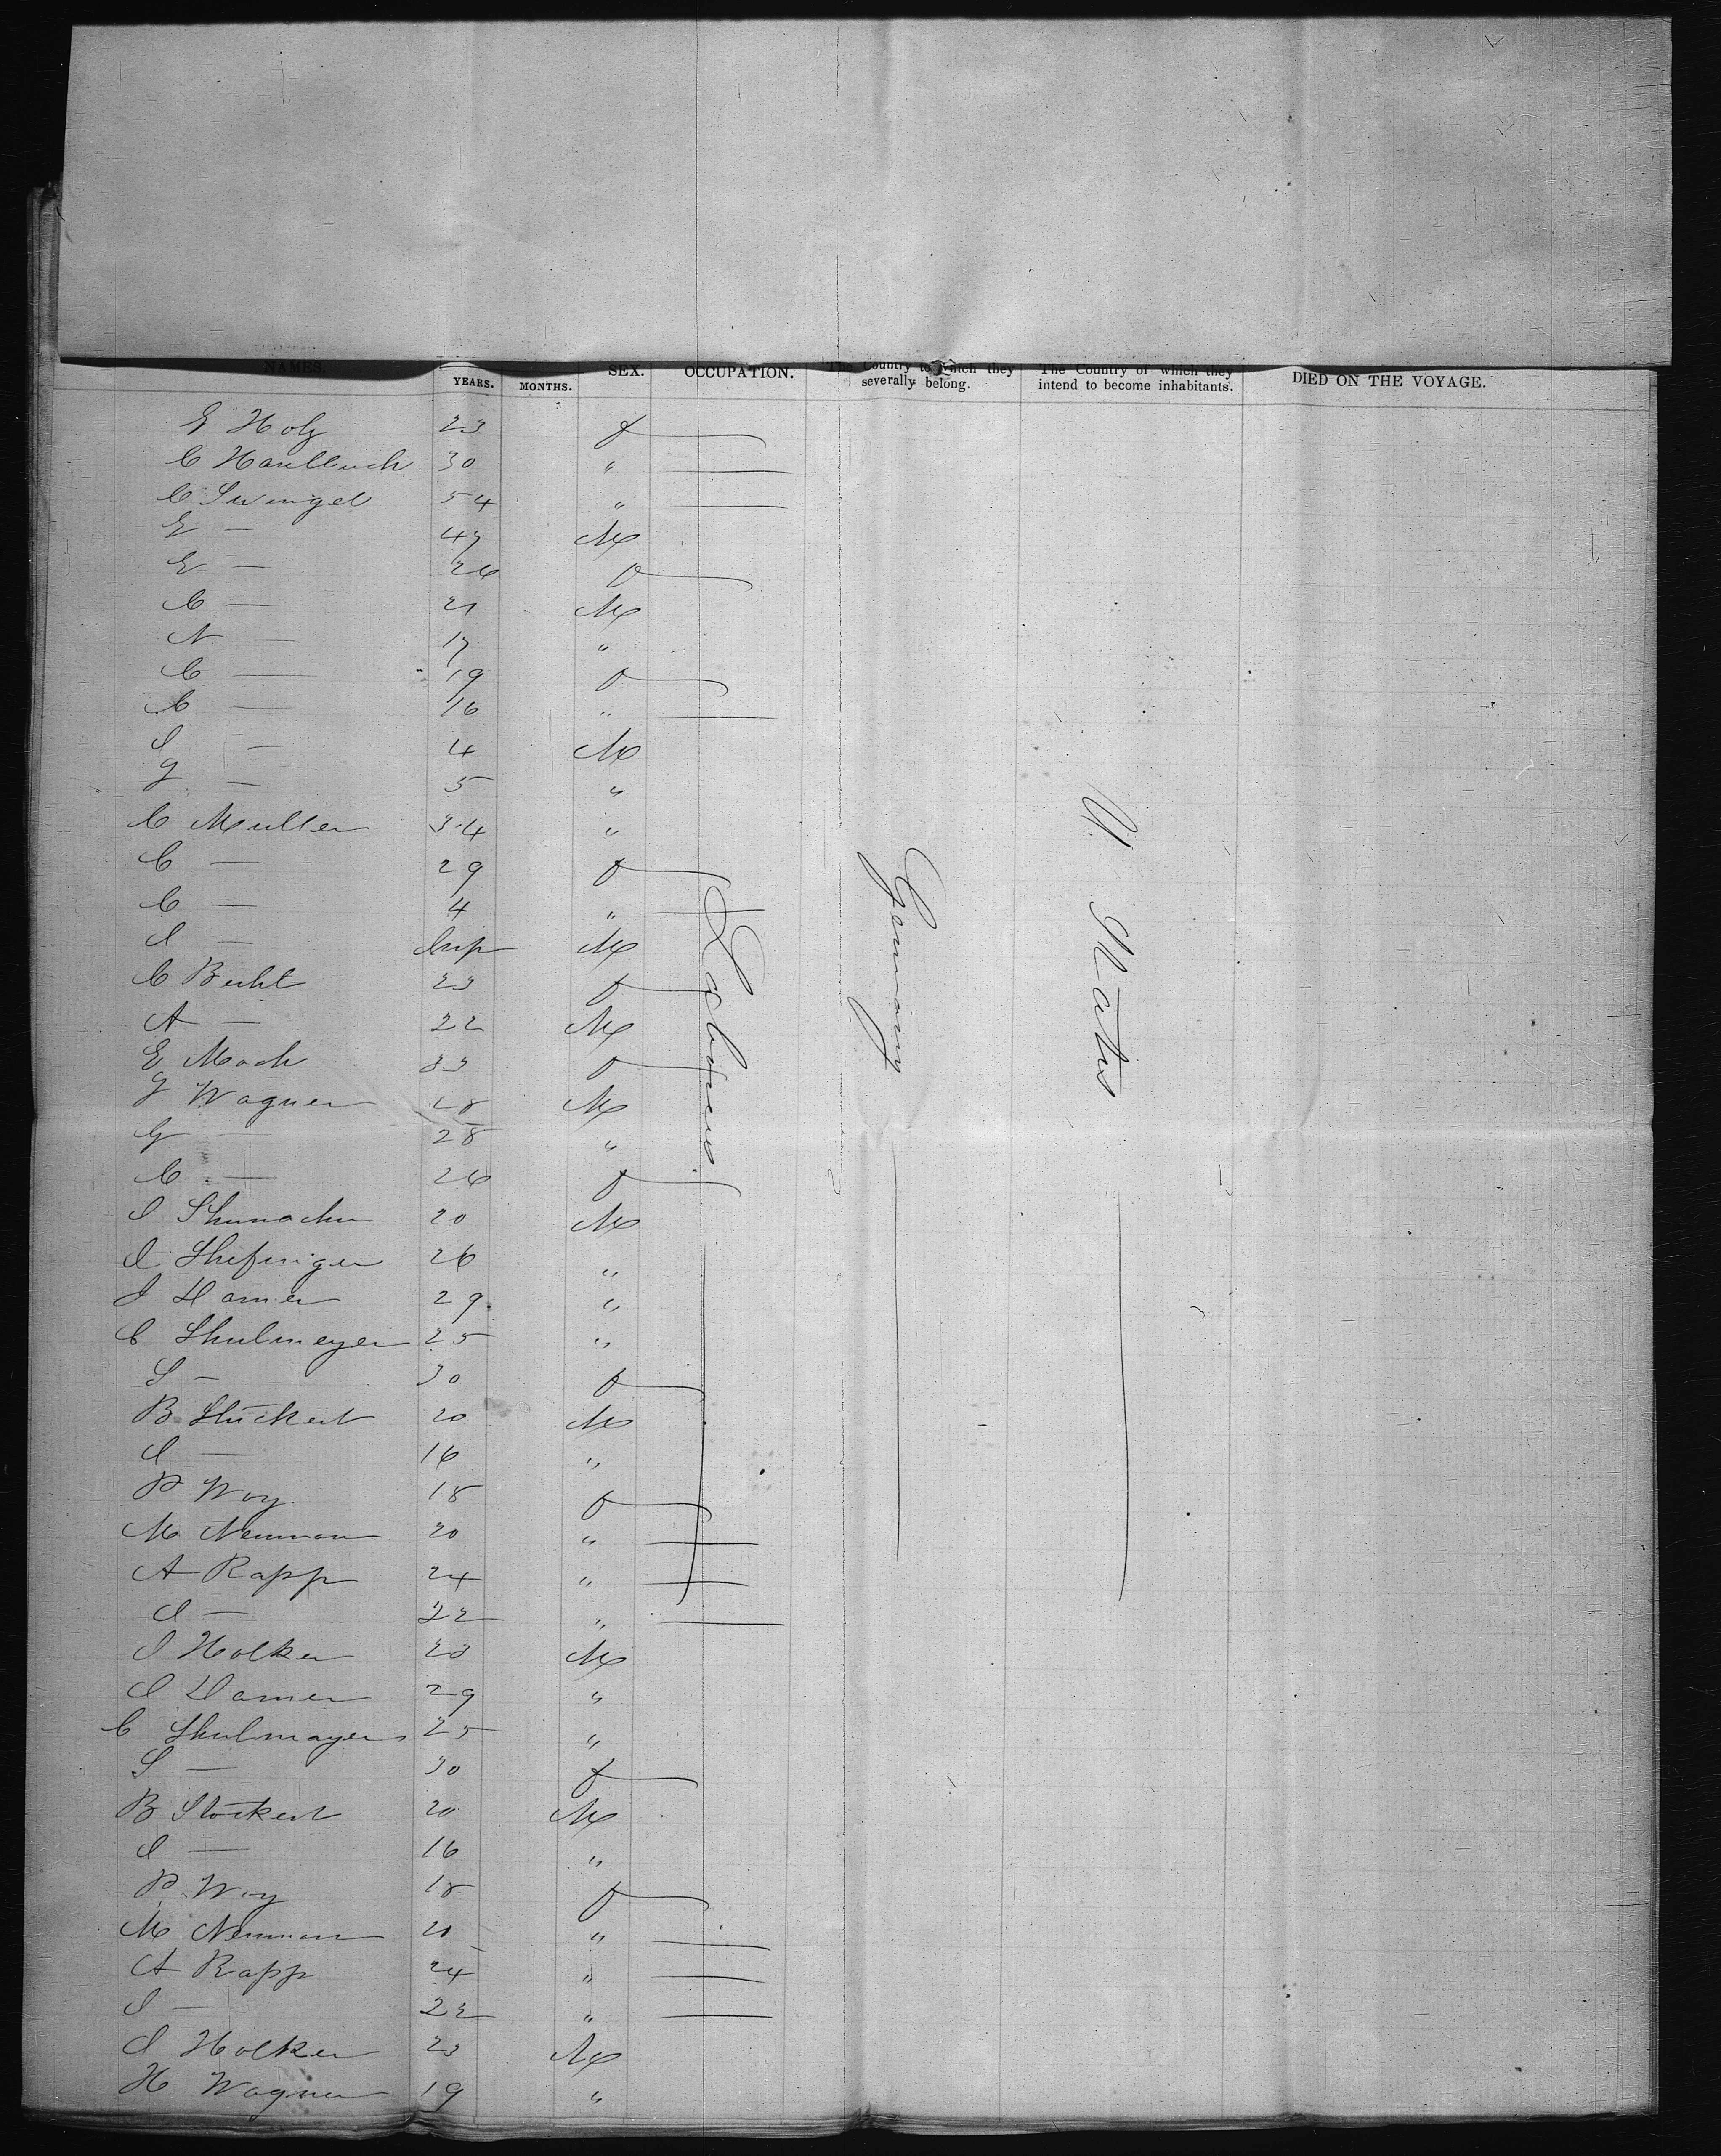 NAMES. YEARS. MONTHS. SEX. OCCUPATION. The Country to which they severally belong. The Country of which they intend to become inhabitants. DIED ON THE VOYAGE.
E Holz 23 f
C 30 "
C Swingel 54 "
E — 47 M
E — 26 f
C — 21 M
N — 17 "
C — 19 f
C — 16 "
S — 4 M
G — 5 "
C Muller 34 "
C — 29 f
C — 4 "
I — M
C Buhl 23 f
A — 22 M
E Moch 33 f
G Wagner 18 M
G — 28 "
C — 26 f
I Shumacher 20 M
I 26 "
I Damer 29 "
C Shulmeyer 25 "
S — 30 f
B Stuckert 20 M
I — 16 "
P Woy 18 f
M Neuman 20 "
A Rapp 24 "
I — 22 "
I Holker 23 M
I Damer 29 "
C Shulmayer 25 "
S — 30 f
B Stockert 20 M
I — 16 "
P Woy 18 f
M Neuman 20 "
A Rapp 24 "
I — 22 "
I Holker 23 M
H Wagner 19 "
Laborers
Germany
U. States